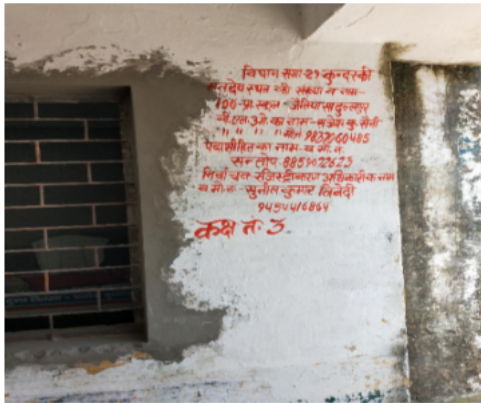 विधान सभा 29 कुन्दरकी
मतदेय स्थल की संख्या व नाम-
100-प्रा. स्कूल-
बी.एल.ओ का नाम- कु. सैनी
" " " " मो.नं 9837060485
पदाभिहित का नाम व मो. न.
सन्तोष 8859022623
निर्वाचक रजिस्ट्रीकरण अधिकारी का नाम
व मो.न- सुनील कुमार त्रिवेदी
9454416864
कक्ष नं: 3